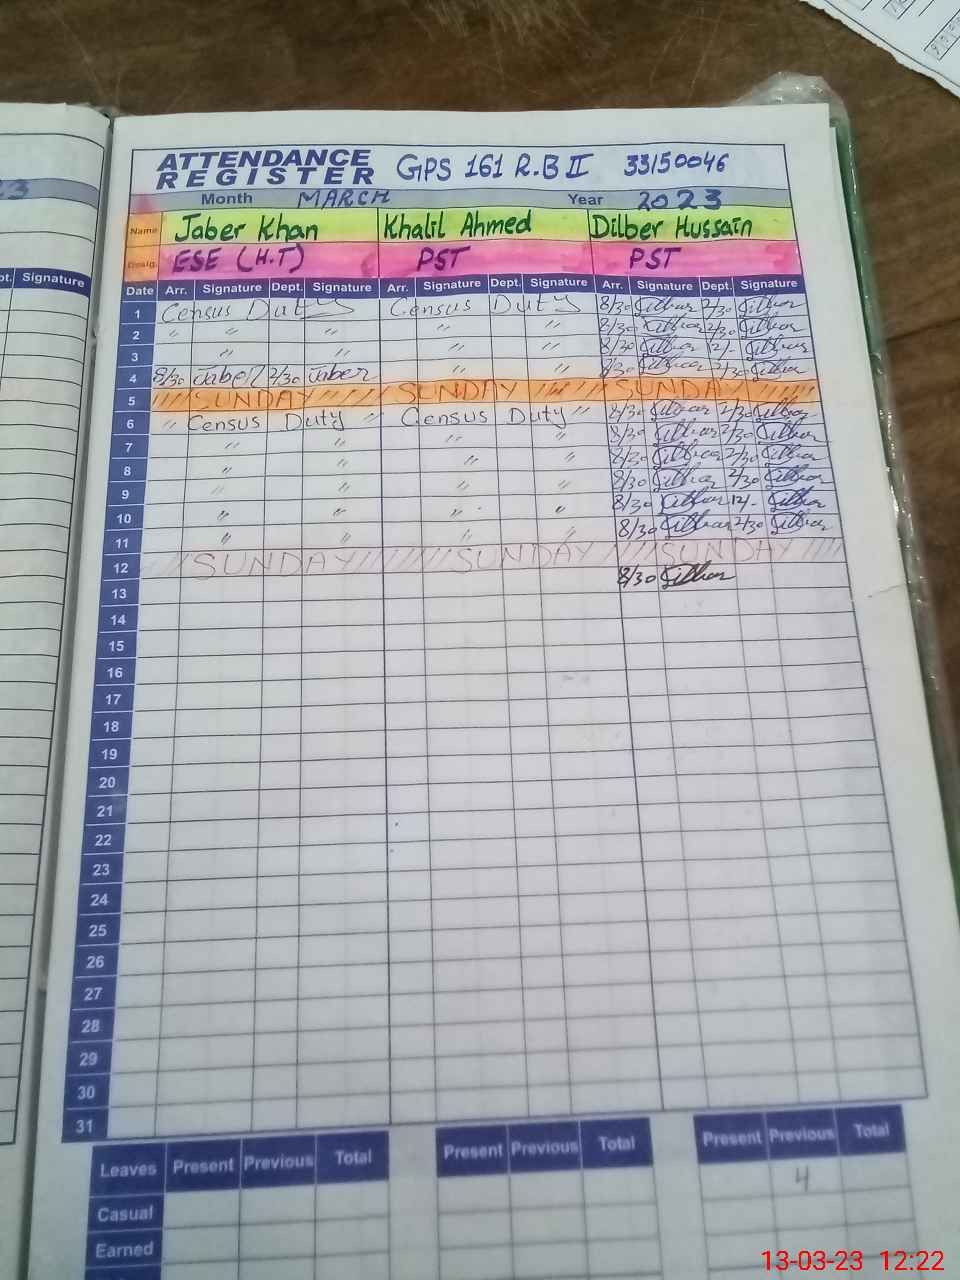 ATTENDANCE REGISTER GPS 161 R.B II 33150046
Month MARCH Year 2023
Name Jaber Khan Khalil Ahmed Dilber Hussain
Desig. ESE (H.T) PST PST
pt. Signature
Date Arr. Signature Dept. Signature Arr. Signature Dept. Signature Arr. Signature Dept. Signature
1 Census Duty Census Duty 8/30 2/30
2 〃 〃 〃 〃 〃 8/30 2/30
3 〃 〃 〃 〃 8/30 12/-
4 8/30 Jaber 2/30 Jaber 〃 〃 8/30 2/30
5 SUNDAY SUNDAY SUNDAY
6 〃 Census Duty 〃 Census Duty 〃 8/30 2/30
7 〃 〃 〃 〃 8/30 2/30
8 〃 〃 〃 〃 8/30 2/30
9 〃 〃 〃 〃 8/30 2/30
10 〃 〃 〃 〃 8/30 12/-
11 〃 〃 〃 〃 8/30 2/30
12 SUNDAY SUNDAY SUNDAY
13 8/30
14
15
16
17
18
19
20
21
22
23
24
25
26
27
28
29
30
31
Leaves Present Previous Total Present Previous Total Present Previous Total
4
Casual
Earned
13-03-23 12:22